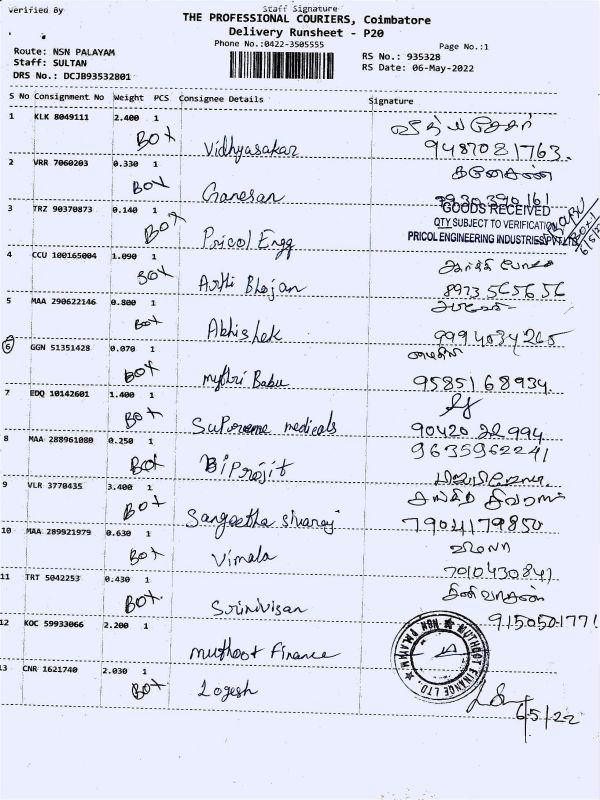 Verified By
Staff Signature
THE PROFESSIONAL COURIERS, Coimbatore
Delivery Runsheet - P20
Phone No.:0422-3505555
Page No.:1
Route: NSN PALAYAM
Staff: SULTAN
DRS No.: DCJB93532801
RS No.: 935328
RS Date: 06-May-2022
S No Consignment No Weight PCS Consignee Details Signature
1 KLK 8049111 2.400 1
BOX Vidhyasakar 9487081763.
2 VRR 7060203 0.330 1
BOX Ganesan கனேசன்
7930390161
3 TRZ 90370873 0.140 1
BOX Pricol Engg
GOODS RECEIVED
QTY SUBJECT TO VERIFICATION
PRICOL ENGINEERING INDUSTRIES PVT LTD
4 CCU 100165004 1.090 1
BOX Arthi Bhojan
8973565656
5 MAA 290622146 0.800 1
BOX Abhishek
9994034265
6 GGN 51351428 0.070 1
BOX mythri Babu
9585168934.
7 EDQ 10142601 1.400 1
BOX Supreme medicals
90420 22 994
8 MAA 288961080 0.250 1
9635962241
BOX Biprojit
9 VLR 3770435 3.400 1
BOX Sangeetha sivaraj
7904179850
10 MAA 289921979 0.630 1
BOX Vimala விமலா
7010430841
11 TRT 5042253 0.430 1
BOX Srinivisan சீனிவாசன்
12 KOC 59933066 2.200 1
9150501771
muthoot Finance
MUTHOOT FINANCE LTD. ★ NSN PALAYAM ★
13 CNR 1621740 2.030 1
BOX Logesh
6/5/22